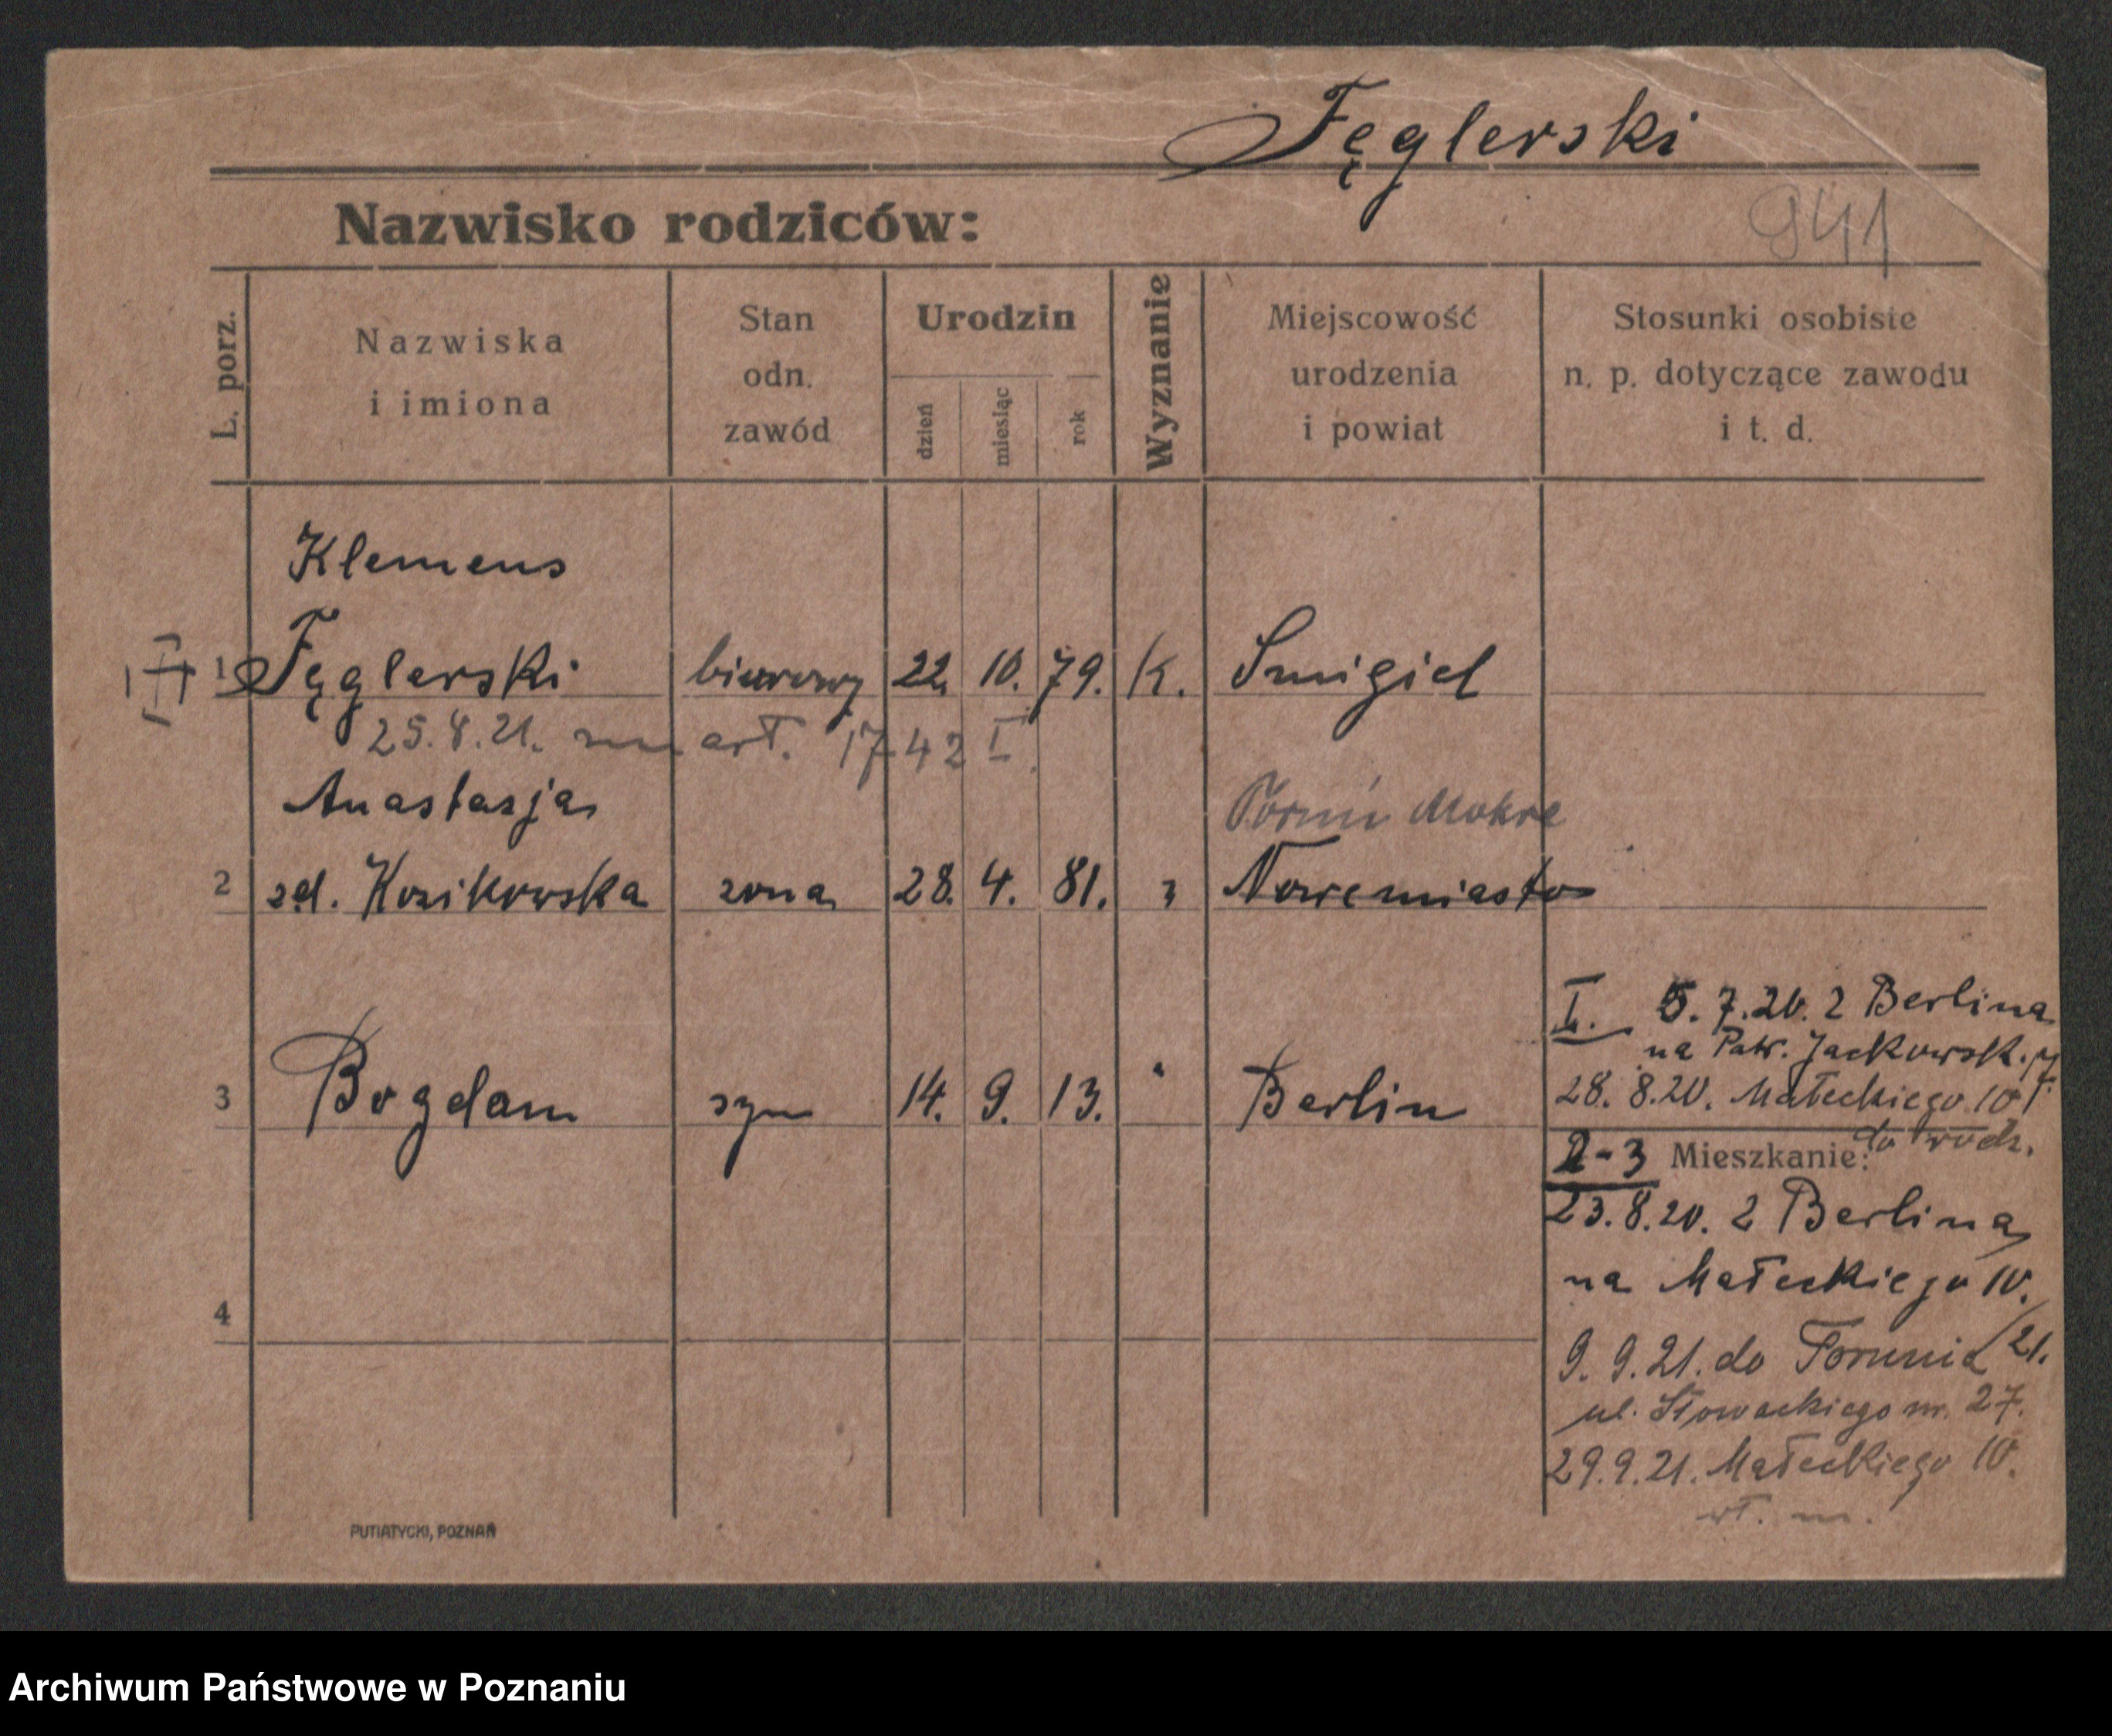 Fęglerski
941
Nazwisko rodziców:
L. porz.
Nazwiska
i imiona
Stan
odn.
zawód
Urodzin
dzień
miesiąc
rok
Wyznanie
Miejscowość
urodzenia
i powiat
Stosunki osobiste
n. p. dotyczące zawodu
i t. d.
Klemens
1 Fęglerski biurowy 22. 10. 79. K. Smigiel
25.8.21. zmart. 1742 I
Anastazja Toruń Mokre
2 Kozikowska zona 28. 4. 81. " Nowemiasto
3 Bogdan syn 14. 9. 13. " Berlin
I. 5. 7. 20. z Berlina
na Patr. Jackowsk.
28. 8. 20. Małeckiego 10
do rodz.
2-3 Mieszkanie:
23. 8. 20. z Berlina
na Małeckiego 10.
4
9. 9. 21. do Torunia /21.
ul. Słowackiego nr. 27.
29. 9. 21. Małeckiego 10.
wł. m.
PUTIATYCKI, POZNAŃ
Archiwum Państwowe w Poznaniu